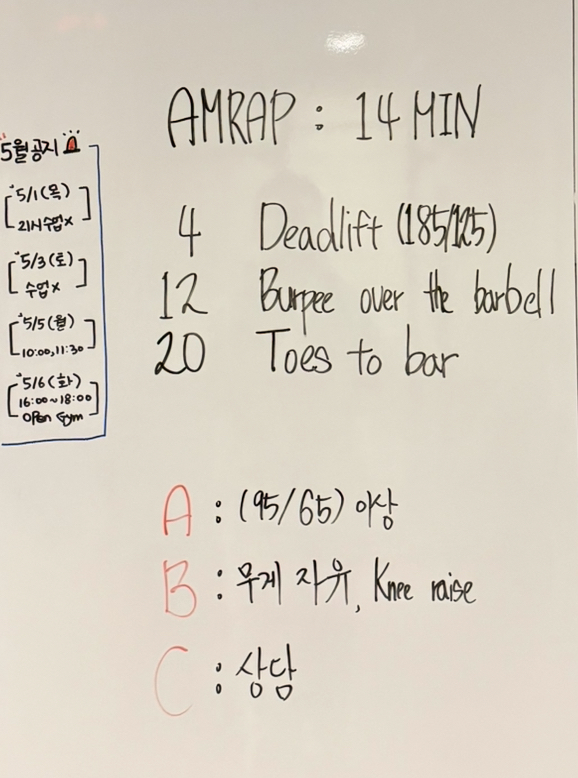 AMRAP : 14 MIN
4 Deadlift (185/125)
12 Burpee over the barbell
20 Toes to bar
A : (95/65) 이상
B : 무게 자유, Knee raise
C : 상담
5월 공지
5/1 (목)
21시 수업 x
5/3 (토)
수업 x
5/5 (월)
10:00, 11:30
5/6 (화)
16:00~18:00
OPen Gym